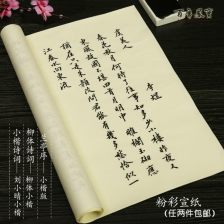 虞美人
李煜
春花秋月何時了往事知多少小樓昨夜又
東風故國不堪回首月明中雕欄玉砌應
猶在只是朱顏改問君能有幾多愁恰似一
江春水向東流
小楷版
柳体诗词 柳体小楷
小楷诗词 刘小晴小楷
粉彩宣纸
(任两件包邮)